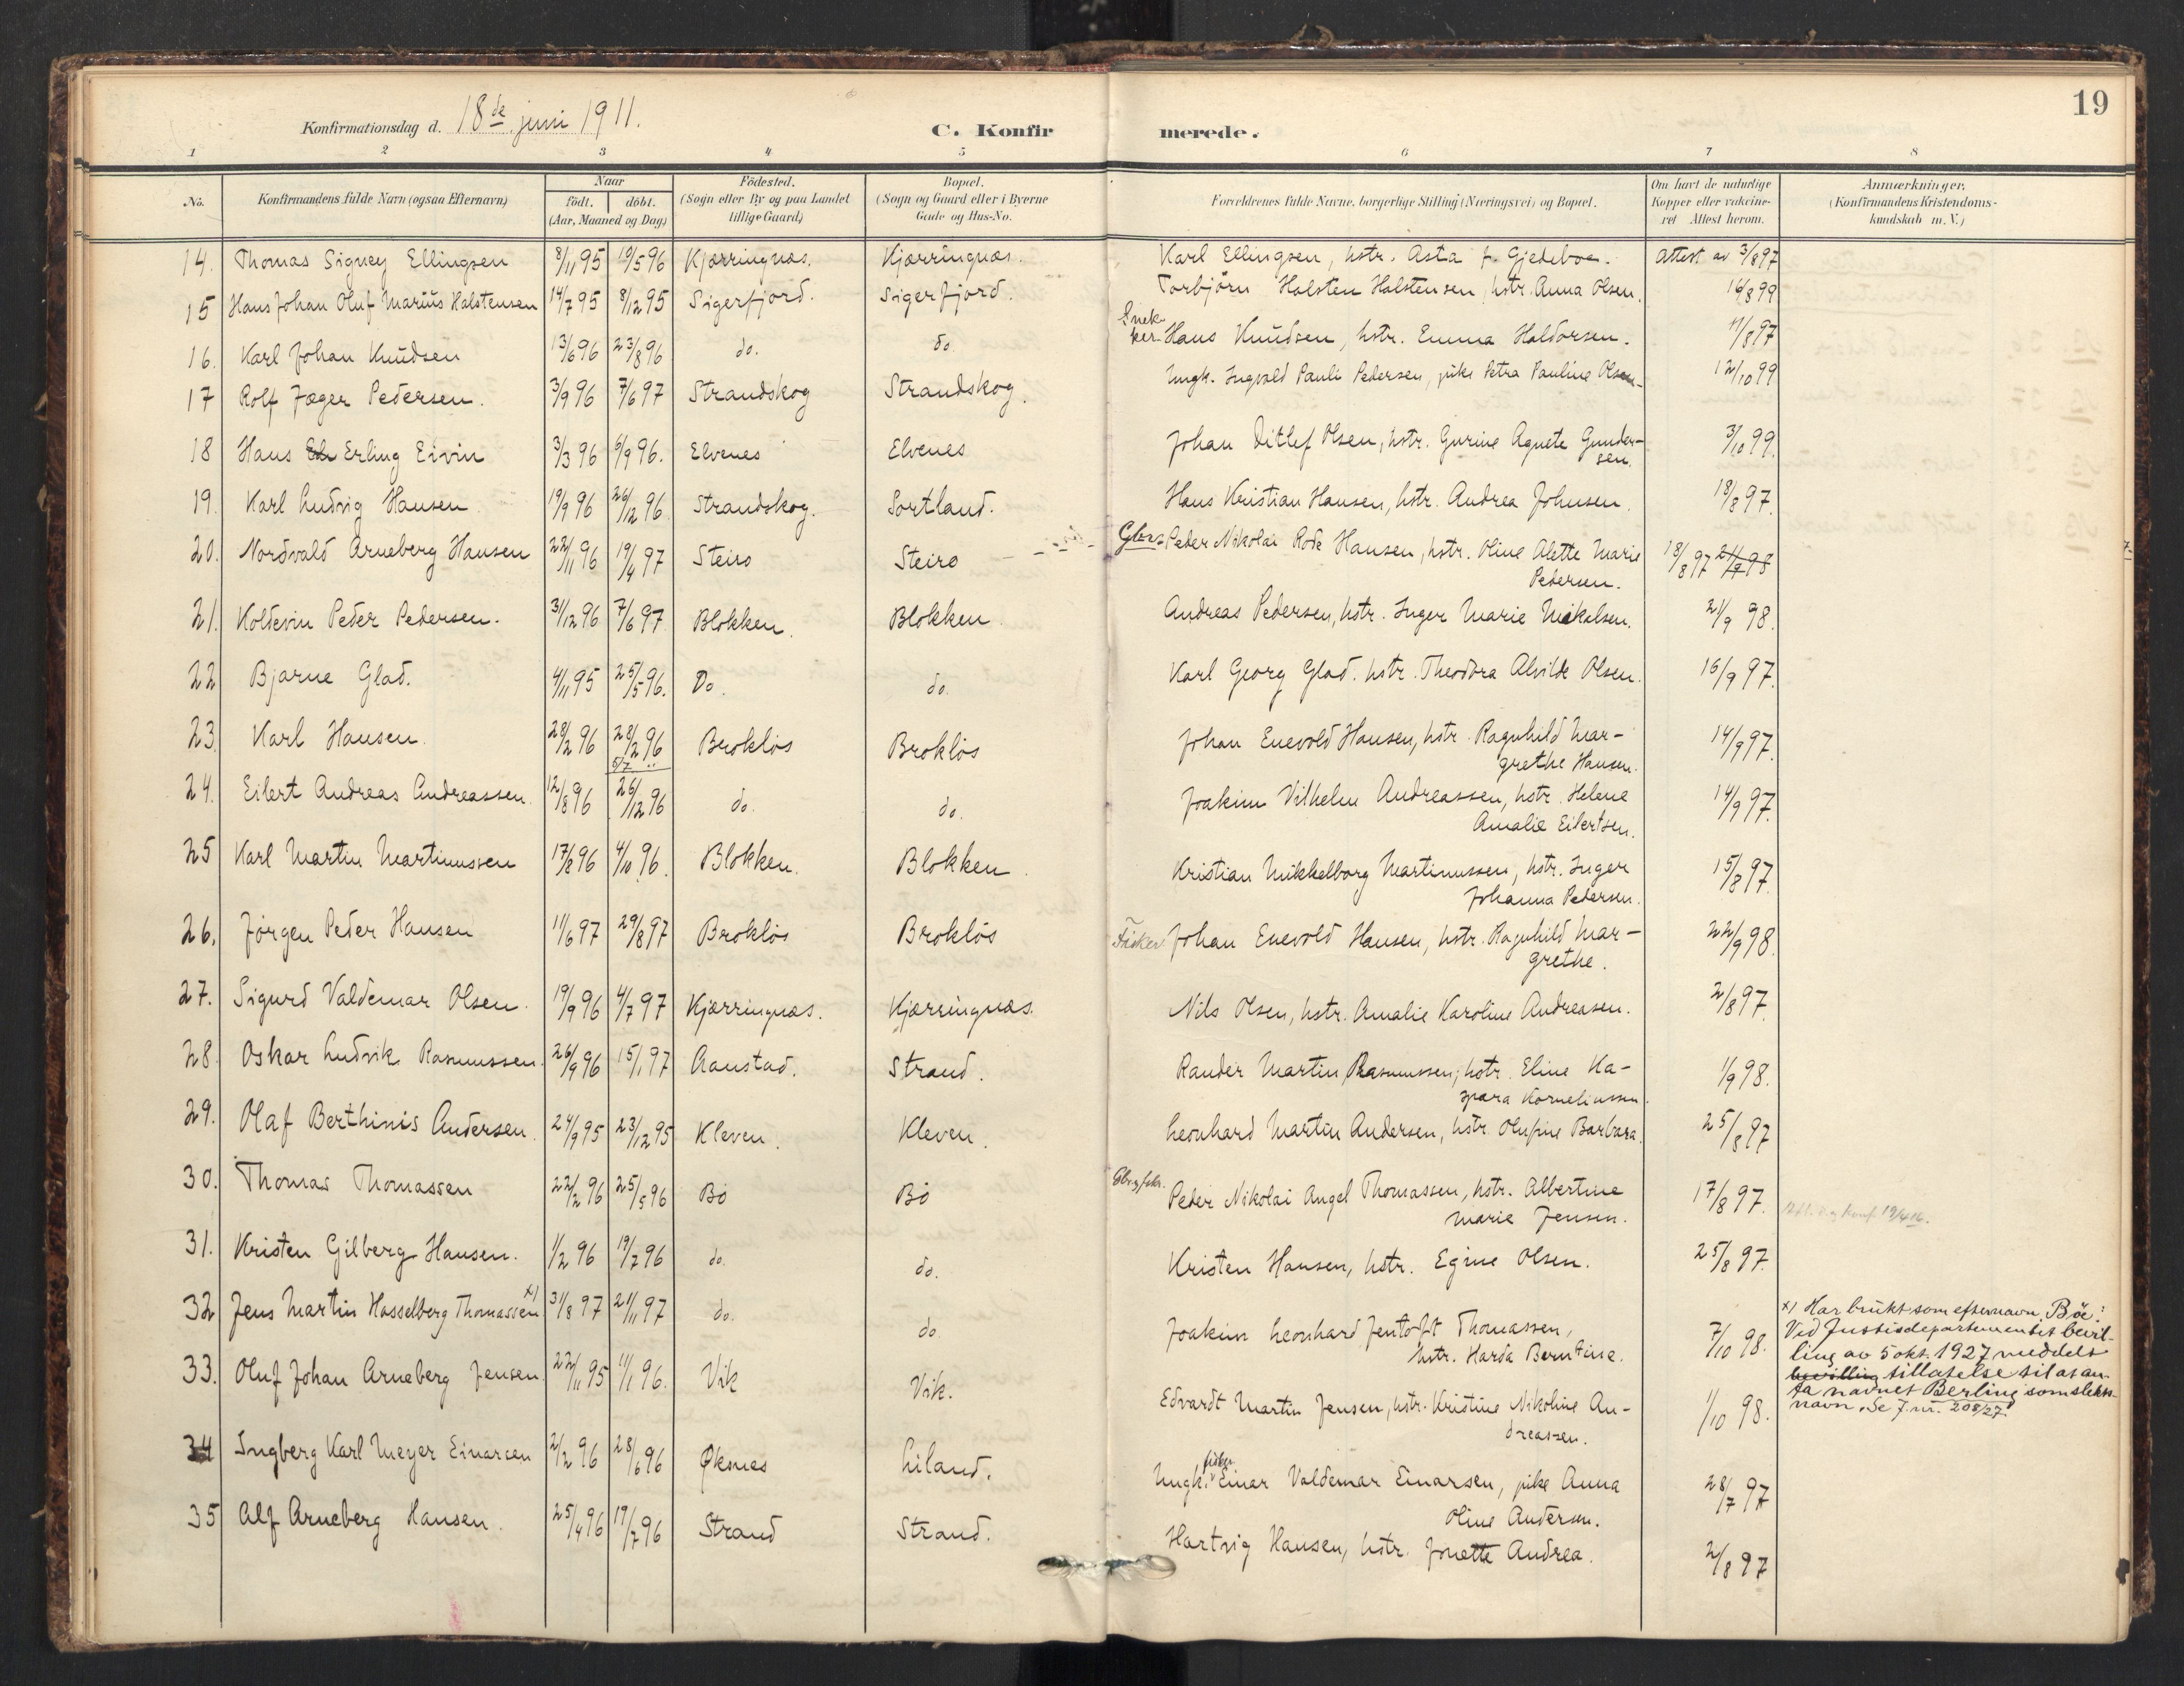 19
Konfirmationsdag d. 18de juni 1911.
C. Konfirmerede.
1 2 3 4 5 6 7 8
No.
Konfirmandens fulde Navn (ogsaa Efternavn)
Naar
født. døbt.
(Aar, Maaned og Dag)
Födested.
(Sogn eller By og paa Landet
tillige Gaard)
Bopæl.
(Sogn og Gaard eller i Byerne
Gade og Hus-No.
Forældrenes fulde Navne, borgerlige Stilling (Næringsvei) og Bopæl.
Om havt de naturlige
Kopper eller vakcine-
ret Attest herom.
Anmærkninger.
(Konfirmandens Kristendoms-
kundskab m. V.)
14. Thomas Signey Ellingsen 8/11 95 10/5 96 Kjærringnæs. Kjærringnæs. Karl Ellingsen, hstr. Asta f. Gjedeboe. Attest av 3/8 97
15 Hans Johan Oluf Marius Halstensen 14/7 95 8/12 95 Sigerfjord. Sigerfjord. Torbjörn Halsten Halstensen, hstr. Anna Olsen. 16/8 99
16. Karl Johan Knudsen 13/6 96 23/8 96 do. do. Snekker. Hans Knudsen, hstr. Emma Haldorsen. 11/8 97
17 Rolf Jæger Pedersen. 3/9 96 7/6 97 Strandskog Strandskog. Ungk. Ingvald Pauli Pedersen, pike Petra Pauline Olsen. 12/10 99
18 Hans Erling Eivin 3/3 96 6/9 96. Elvenes Elvenes Johan Ditlef Olsen, hstr. Gurine Agnete Gunder-
sen. 3/10 99.
19. Karl Ludvig Hansen 19/9 96 26/12 96 Strandskog. Sortland. Hans Kristian Hansen, hstr. Andrea Johnsen. 18/8 97.
20. Nordvald Arneberg Hansen 22/11 96 19/4 97 Steiro Steiro Gbr. Peder Nikolai Rode Hansen, hstr. Oline Alette Marie
Pedersen. 18/8 97 21/9 98
21. Koldevin Peder Pedersen. 31/12 96 7/6 97 Blokken. Blokken Andreas Pedersen, hstr. Inger Marie Mikalsen. 21/9 98.
22 Bjarne Glad. 4/11 95 25/5 96. Do. do. Karl Georg Glad. hstr. Theodora Alvilde Olsen. 16/9 97.
23. Karl Hansen. 28/2 96 28/2 96 5/7 Brokløs Brokløs Johan Enevold Hansen, hstr. Ragnhild Mar-
grethe Hansen. 14/9 97.
24. Eilert Andreas Andreassen. 12/8 96 26/12 96 do. do. Joakim Vilhelm Andreassen, hstr. Helene
Amalie Eilertsen. 14/9 97.
25 Karl Martin Martinussen 17/8 96 4/10 96. Blokken. Blokken. Kristian Mikkelborg Martinussen, hstr. Inger
Johanna Pedersen. 15/8 97.
26. Jørgen Peder Hansen 11/6 97 29/8 97 Brokløs Brokløs Fisker Johan Enevold Hansen, hstr. Ragnhild Mar-
grethe. 22/9 98.
27. Sigurd Valdemar Olsen. 19/9 96 4/7 97 Kjærringnæs. Kjærringnæs. Nils Olsen, hstr. Amalie Karoline Andreasen. 2/8 97.
28. Oskar Ludvik Rasmussen. 26/9 96 15/1 97 Aanstad. Strand. Rander Martin Rasmussen, hstr. Eline Ka-
spara Korneliussen. 1/9 98.
29. Olaf Berthinis Andersen. 24/9 95 23/12 95 Kleven. Kleven. Leonhard Martin Andersen, hstr. Olufine Barbara. 25/8 97
30. Thomas Thomassen 22/2 96 25/5 96 Bø Bø Peder Nikolai Angel Thomassen, hstr. Albertine
Marie Jensen. 17/8 97.
31. Kristen Gilberg Hansen. 1/2 96 19/7 96 do. do. Kristen Hansen, hstr. Egine Olsen. 25/8 97.
32 Jens Martin Hasselberg Thomassen x) 31/8 97 21/11 97 do. do. Joakim Leonhard Jentoft Thomassen,
hstr. Harda Berntine. 7/10 98.
x) Har brukt som efternavn Böe:
Ved Justisdepartementets bevil-
ling av 5 okt. 1927 meddelt
bevilling tillatelse til at an-
ta navnet Berling som slekts-
navn. Se J.nr. 208/27.
33. Oluf Johan Arneberg Jensen. 22/11 95 1/1 96. Vik Vik. Edvardt Martin Jensen, hstr. Kristine Nikoline An-
dreassen. 1/10 98.
34 Ingberg Karl Meyer Einarsen 2/2 96 28/6 96 Øksnes Liland. Ungk. fisker Einar Valdemar Einarsen, pike Anna
Oline Andersen. 28/7 97
35 Alf Arneberg Hansen. 25/4 96 19/7 96 Strand Strand. Hartvig Hansen, hstr. Jonette Andrea. 2/8 97